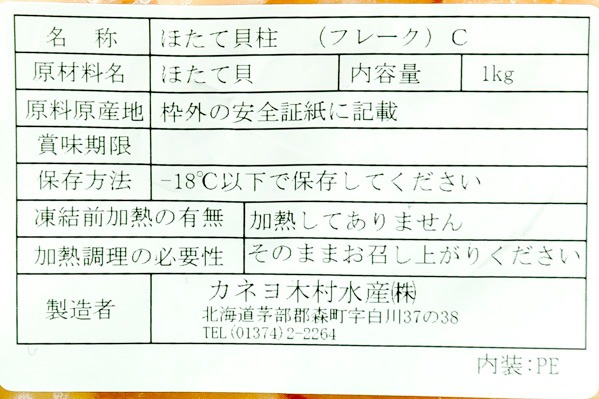 名称 ほたて貝柱 (フレーク) C
原材料名 ほたて貝 内容量 1kg
原料原産地 枠外の安全証紙に記載
賞味期限
保存方法 -18℃以下で保存してください
凍結前加熱の有無 加熱してありません
加熱調理の必要性 そのままお召し上がりください
製造者 カネヨ木村水産㈱
北海道茅部郡森町字白川37の38
TEL(01374)2-2264
内装:PE